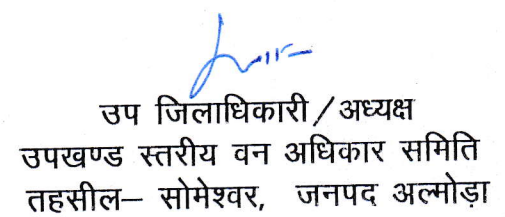 उप जिलाधिकारी / अध्यक्ष
उपखण्ड स्तरीय वन अधिकार समिति
तहसील– सोमेश्वर, जनपद अल्मोड़ा